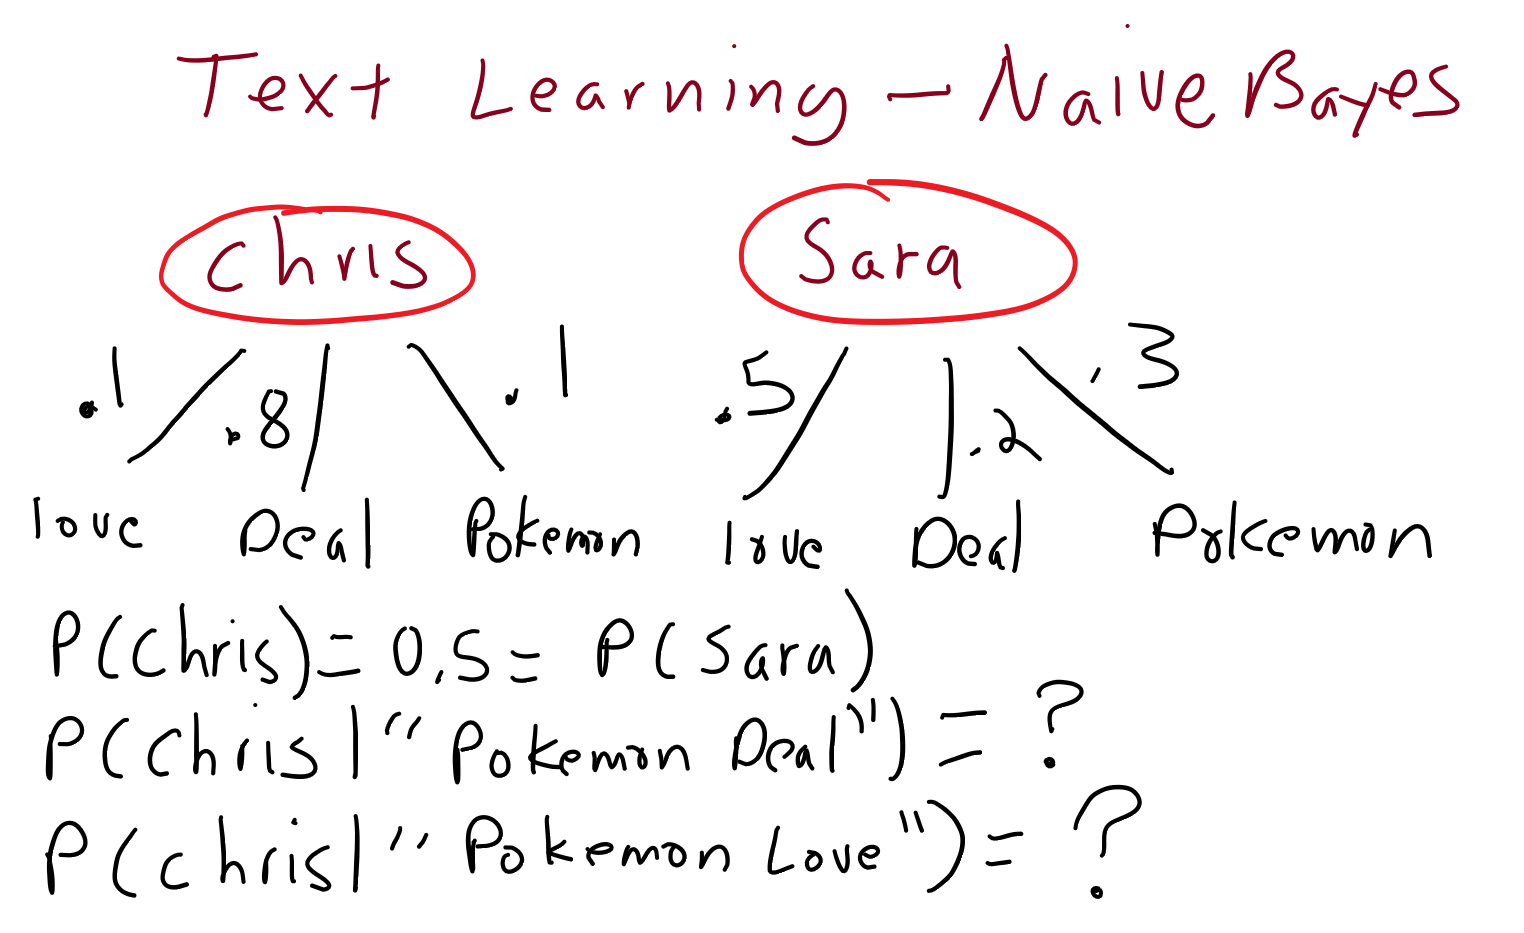 Text Learning - Naive Bayes
Chris Sara
.1 .8 .1 .5 .2 .3
love Deal Pokemon love Deal Pokemon
P(Chris) = 0.5 = P(Sara)
P(Chris | "Pokemon Deal") = ?
P(chris | "Pokemon Love") = ?